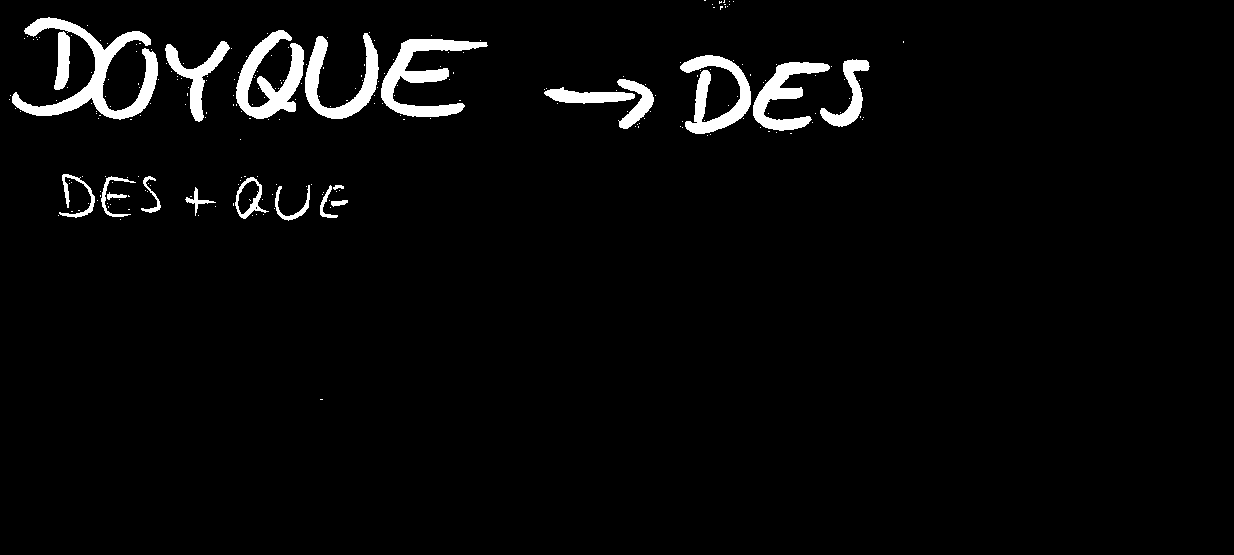 DOYQUE → DES
DES + QUE